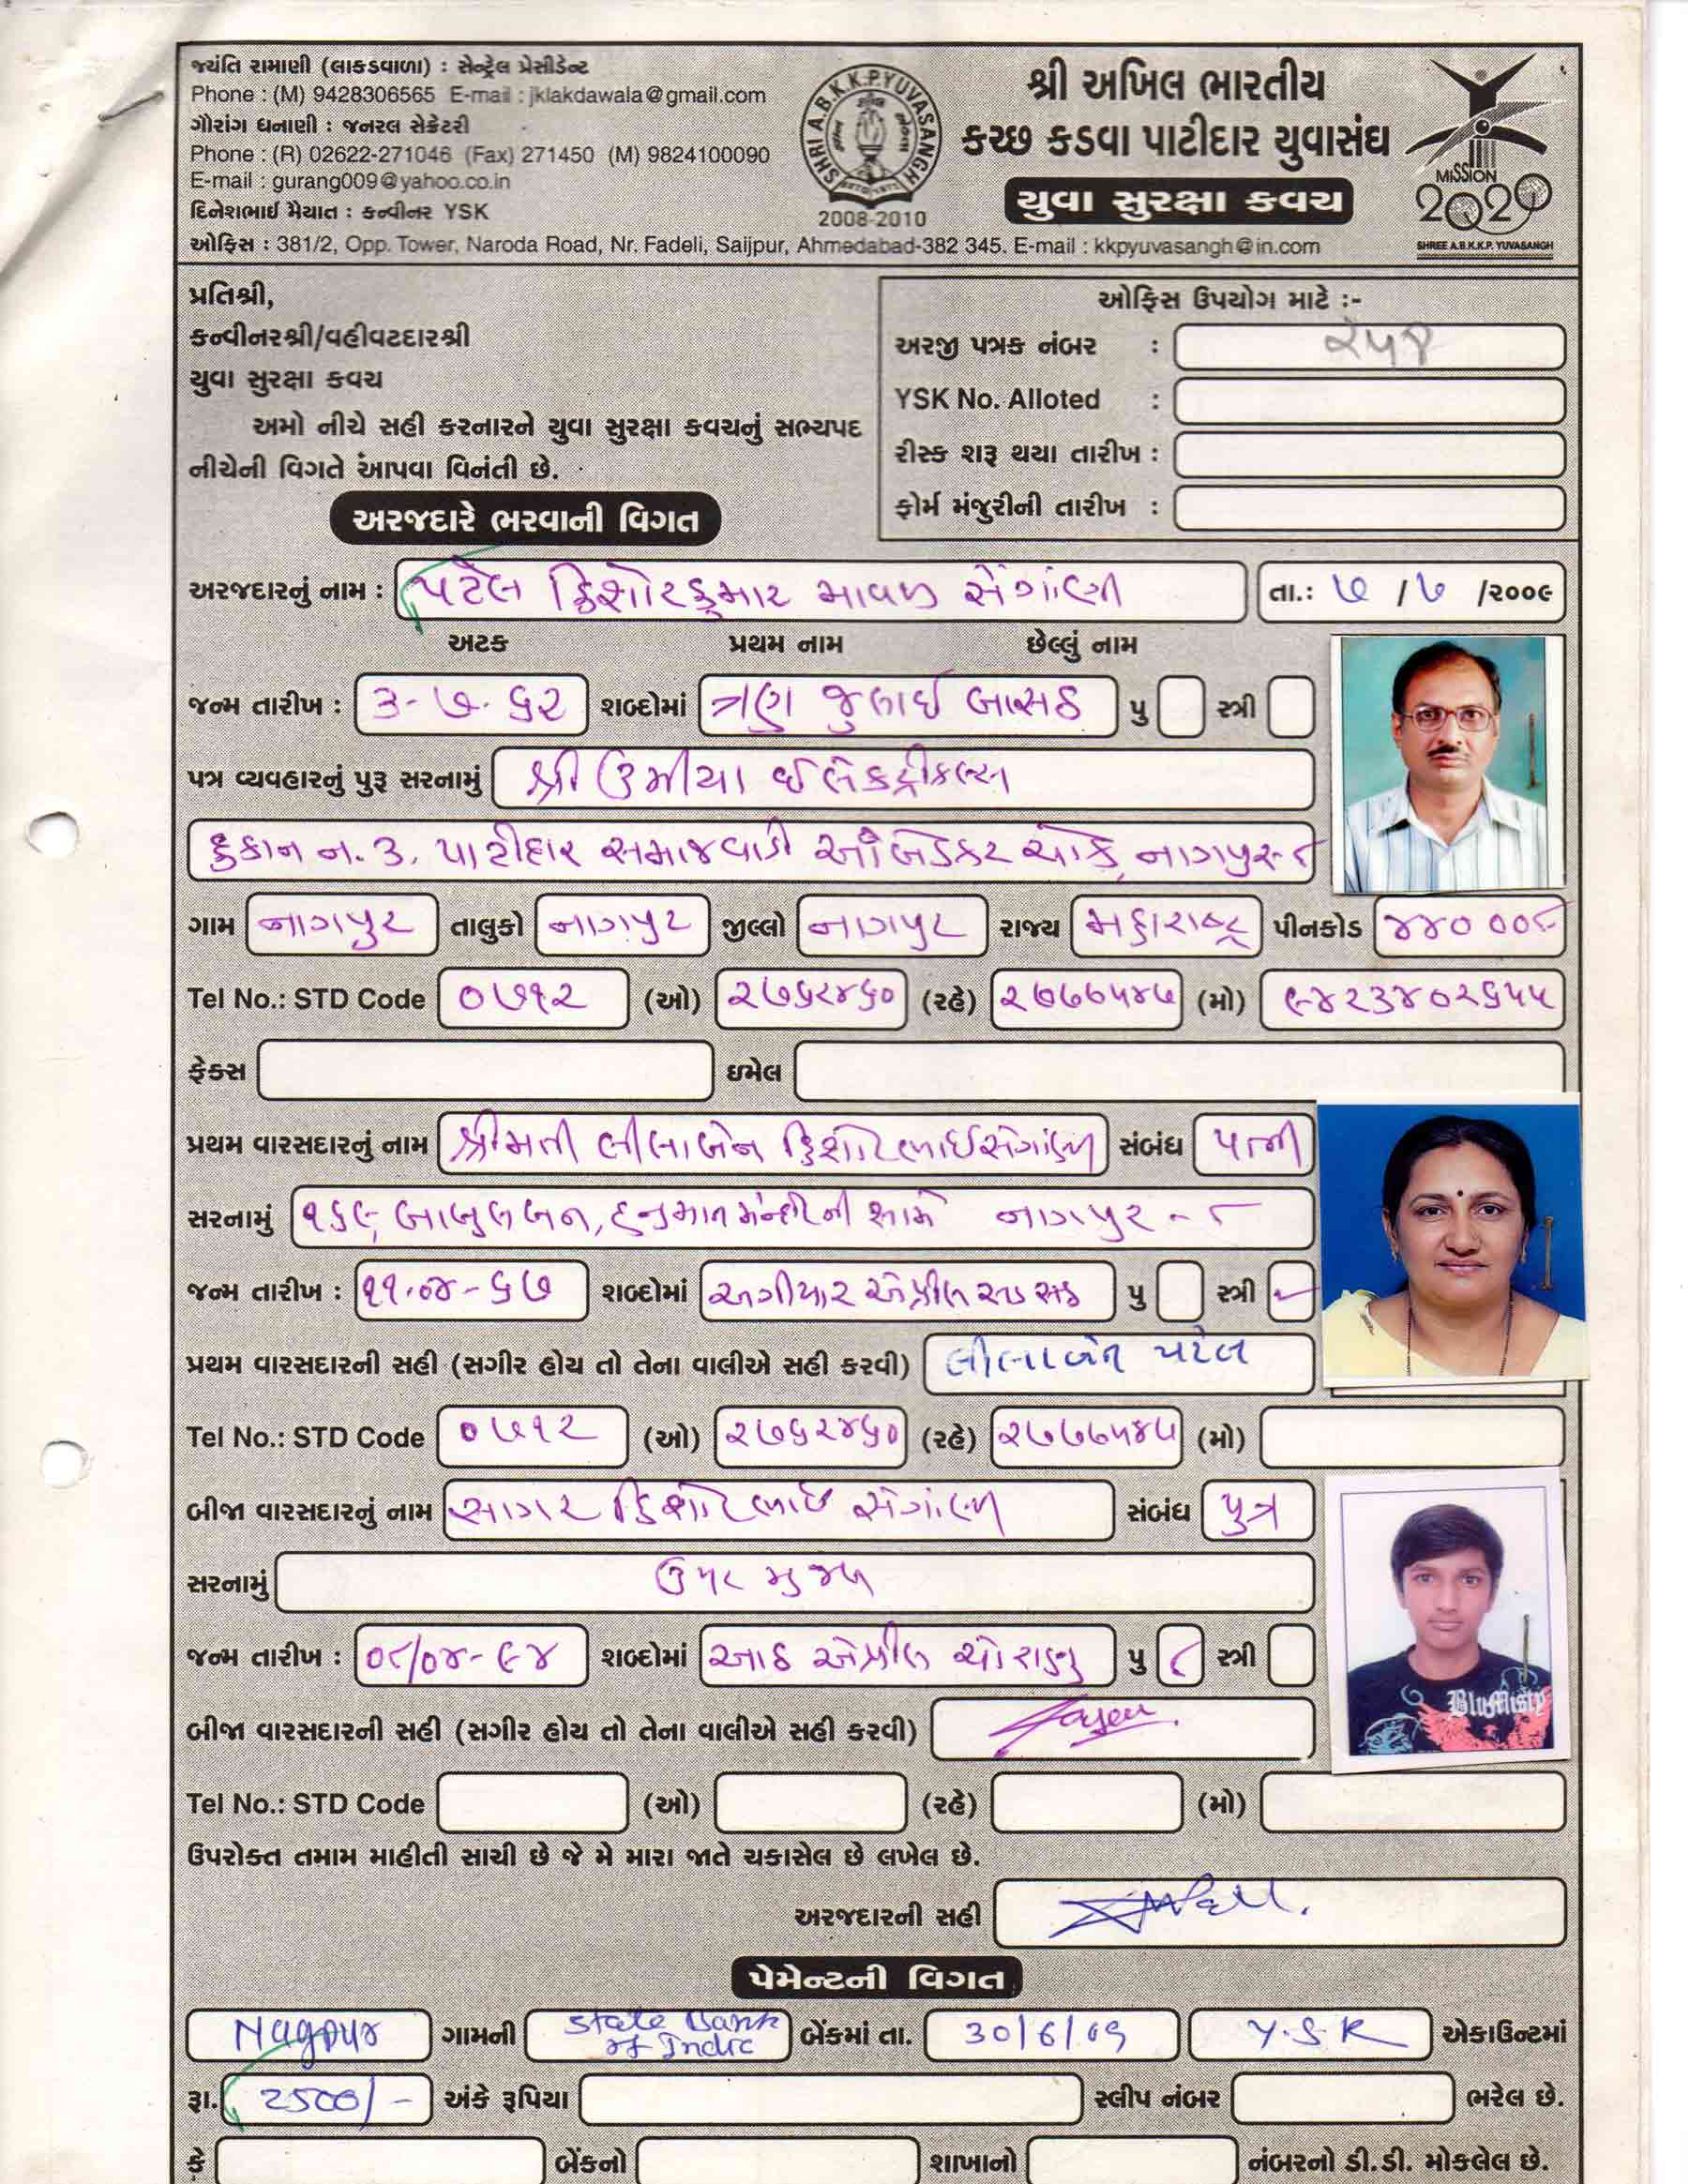 જયંતિ રામાણી (લાકડવાળા) : સેન્ટ્રેલ પ્રેસીડેન્ટ
Phone : (M) 9428306565 E-mail : jklakdawala@gmail.com
ગૌરાંગ ધનાણી : જનરલ સેક્રેટરી
Phone : (R) 02622-271046 (Fax) 271450 (M) 9824100090
E-mail : gurang009@yahoo.co.in
દિનેશભાઈ મૈયાત : કન્વીનર YSK
SHRI A.B.K.K.P. YUVASANGH
2008-2010
શ્રી અખિલ ભારતીય
કચ્છ કડવા પાટીદાર યુવાસંઘ
યુવા સુરક્ષા કવચ
MISSION
2020
SHREE A.B.K.K.P. YUVASANGH
ઓફિસ : 381/2, Opp. Tower, Naroda Road, Nr. Fadeli, Saijpur, Ahmedabad-382 345. E-mail : kkpyuvasangh@in.com
પ્રતિશ્રી,
કન્વીનરશ્રી/વહીવટદારશ્રી
યુવા સુરક્ષા કવચ
અમો નીચે સહી કરનારને યુવા સુરક્ષા કવચનું સભ્યપદ
નીચેની વિગતે આપવા વિનંતી છે.
ઓફિસ ઉપયોગ માટે :-
અરજી પત્રક નંબર :
YSK No. Alloted :
રીસ્ક શરૂ થયા તારીખ :
ફોર્મ મંજુરીની તારીખ :
અરજદારે ભરવાની વિગત
અરજદારનું નામ : પટેલ કિશોરકુમાર માવજી સેંગાંણી તા.: ૭ / ૭ /૨૦૦૯
અટક પ્રથમ નામ છેલ્લું નામ
જન્મ તારીખ : ૩-૭-૬૨ શબ્દોમાં ત્રણ જુલાઈ બાસઠ પુ સ્ત્રી
પત્ર વ્યવહારનું પુરૂ સરનામું શ્રી ઉમીયા ઈલેકટ્રીકલ્સ
દુકાન ન. ૩, પાટીદાર સમાજવાડી આંબેડકર ચોક, નાગપુર-૮
ગામ નાગપુર તાલુકો નાગપુર જીલ્લો નાગપુર રાજ્ય મહારાષ્ટ્ર પીનકોડ ૪૪૦ ૦૦૮
Tel No.: STD Code ૦૭૧૨ (ઓ) ૨૭૬૨૪૬૦ (રહે) ૨૭૭૭૫૪૭ (મો) ૯૪૨૩૪૦૨૬૫૫
ફેક્સ ઇમેલ
પ્રથમ વારસદારનું નામ શ્રીમતી લીલાબેન કિશોરભાઈ સેંગાંણી સંબંધ પત્ની
સરનામું ૧૬૯, બાબુલબન, હનુમાન મંન્દીરની સામે નાગપુર - ૮
જન્મ તારીખ : ૧૧-૦૪-૬૭ શબ્દોમાં અગીયાર એપ્રીલ સડસઠ પુ સ્ત્રી
પ્રથમ વારસદારની સહી (સગીર હોય તો તેના વાલીએ સહી કરવી) લીલાબેન પટેલ
Tel No.: STD Code ૦૭૧૨ (ઓ) ૨૭૬૨૪૬૦ (રહે) ૨૭૭૭૫૪૭ (મો)
બીજા વારસદારનું નામ સાગર કિશોરભાઈ સેંગાંણી સંબંધ પુત્ર
સરનામું ઉપર મુજબ
જન્મ તારીખ : ૦૮/૦૪-૯૪ શબ્દોમાં આઠ એપ્રીલ ચોરાણુ પુ સ્ત્રી
BluMisty
બીજા વારસદારની સહી (સગીર હોય તો તેના વાલીએ સહી કરવી)
Tel No.: STD Code (ઓ) (રહે) (મો)
ઉપરોક્ત તમામ માહીતી સાચી છે જે મે મારા જાતે ચકાસેલ છે લખેલ છે.
અરજદારની સહી
પેમેન્ટની વિગત
Nagpur ગામની State Bank of India બેંકમાં તા. 30/6/09 Y.S.K એકાઉન્ટમાં
રૂા. 2500/- અંકે રૂપિયા સ્લીપ નંબર ભરેલ છે.
કે બેંકનો શાખાનો નંબરનો ડી.ડી. મોકલેલ છે.